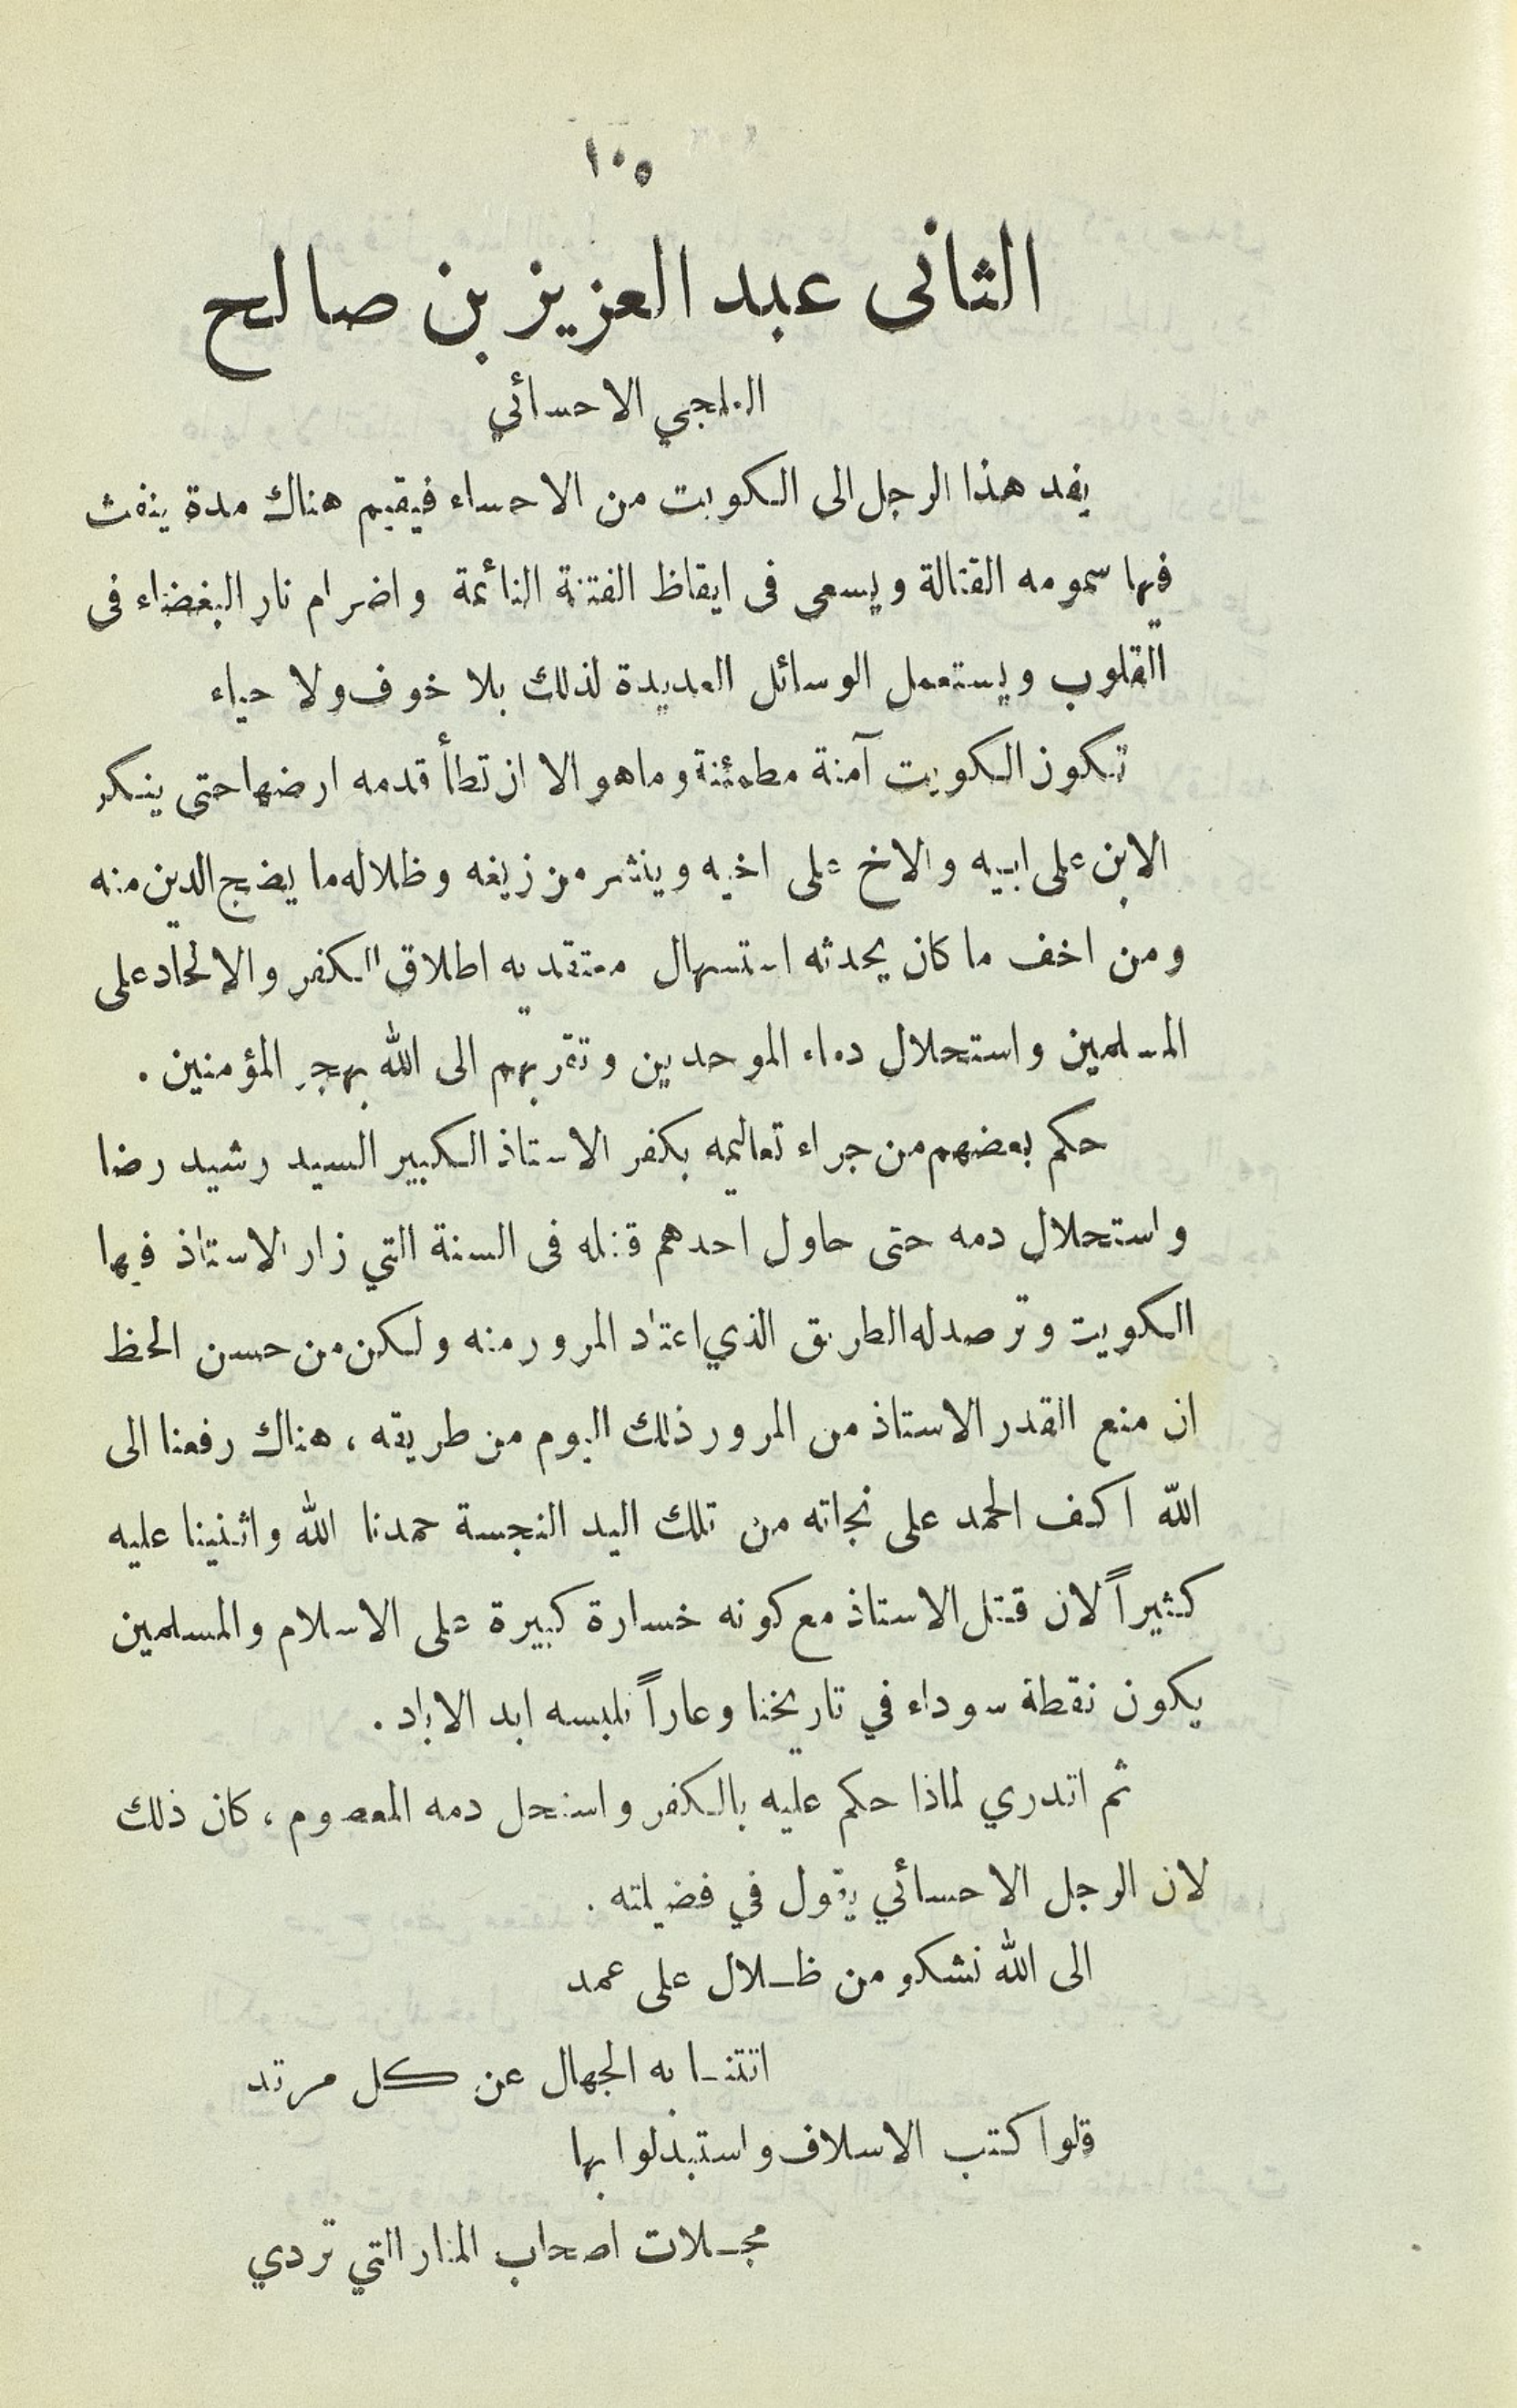 ١٠٥
الثانى عبد العزيز بن صالح
العلجي الاحسائي
يفد هذا الرجل الى الكويت من الاحساء فيقيم هناك مدة ينفث
فيها سمومه القتالة ويسعى فى ايقاظ الفتنة النائمة واضرام نار البغضاء فى
القلوب ويستعمل الوسائل العديدة لذلك بلا خوف ولا حياء
تكون الكويت آمنة مطمئنة وما هو الا ان تطأ قدمه ارضها حتى ينكر
الابن على ابيه والاخ على اخيه وينشر من زيغه وظلاله ما يضج الدين منه
ومن اخف ما كان يحدثه استسهال معتقديه اطلاق الكفر والالحاد على
المسلمين واستحلال دماء الموحدين وتقربهم الى الله بهجر المؤمنين .
حكم بعضهم من جراء تعاليمه بكفر الاستاذ الكبير السيد رشيد رضا
واستحلال دمه حتى حاول احدهم قتله فى السنة التي زار الاستاذ فيها
الكويت وترصد له الطريق الذي اعتاد المرور منه ولكن من حسن الحظ
ان منع القدر الاستاذ من المرور ذلك اليوم من طريقه ، هناك رفعنا الى
الله اكف الحمد على نجاته من تلك اليد النجسة حمدنا الله واثنينا عليه
كثيراً لان قتل الاستاذ مع كونه خسارة كبيرة على الاسلام والمسلمين
يكون نقطة سوداء في تاريخنا وعاراً نلبسه ابد الاباد .
ثم اتدري لماذا حكم عليه بالكفر واستحل دمه المعصوم ، كان ذلك
لان الرجل الاحسائي يقول في فضيلته .
الى الله نشكو من ظلال على عمد
اتتنا به الجهال عن كل مرتد
قلوا كتب الاسلاف واستبذلوا بها
مجلات اصحاب المنار التي تردي